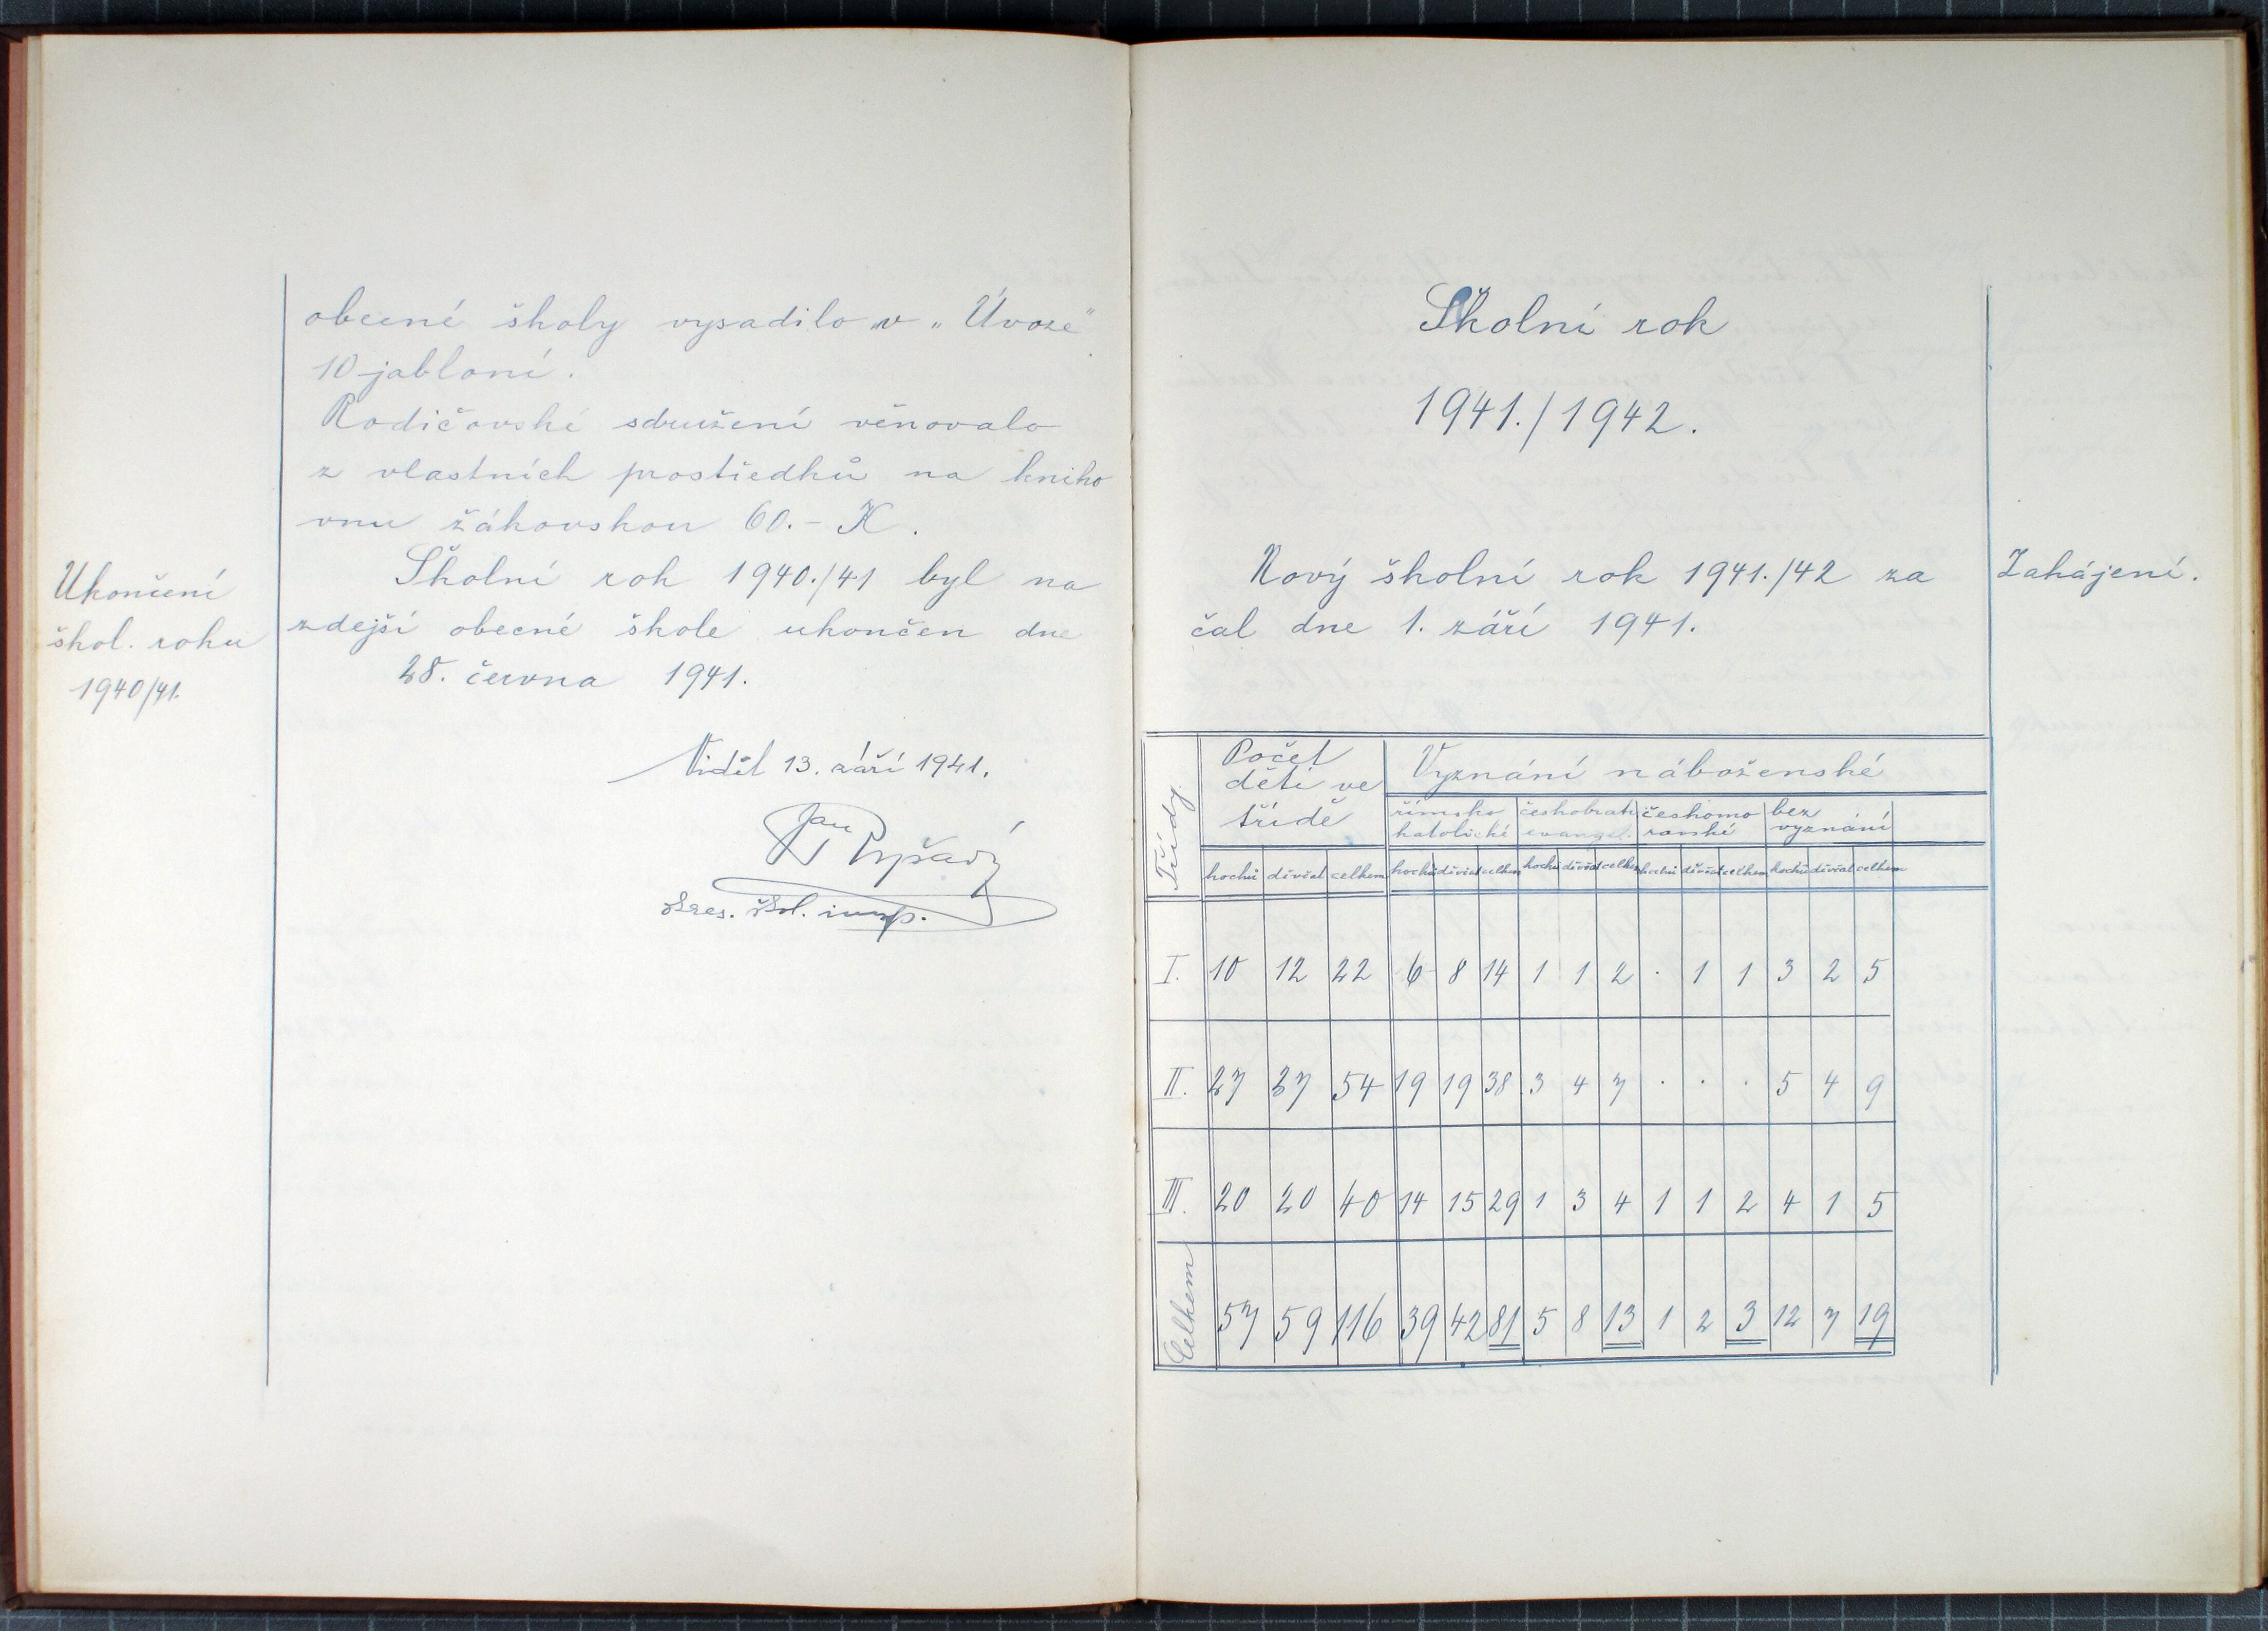 obecné školy vysadilo „v „Úvoze"
10 jabloní.
Rodičovské sdružení věnovalo
z vlastních prostředků na kniho
vnu žákovskou 60.- K.
Ukončení
škol. roku
1940/41.
Školní rok 1940./41 byl na
zdejší obecné škole ukončen dne
28. června 1941.
Viděl 13. září 1941.
Jan
škol. insp.
Školní rok
1941./1942.
Nový školní rok 1941./42 za
čal dne 1. září 1941.
Zahájení.
Třídy. Počet dětí ve třídě Vyznání náboženské
římsko katolické českobratr evangel. českomo ravské bez vyznání
hochů děvčat celkem hochů děvčat celkem hochů děvčat celkem hochů děvčat celkem hochů děvčat celkem
I. 10 12 22 6 8 14 1 1 2 . 1 1 3 2 5
II. 27 27 54 19 19 38 3 4 7 . . . 5 4 9
III. 20 20 40 14 15 29 1 3 4 1 1 2 4 1 5
Celkem 57 59 116 39 42 81 5 8 13 1 2 3 12 7 19